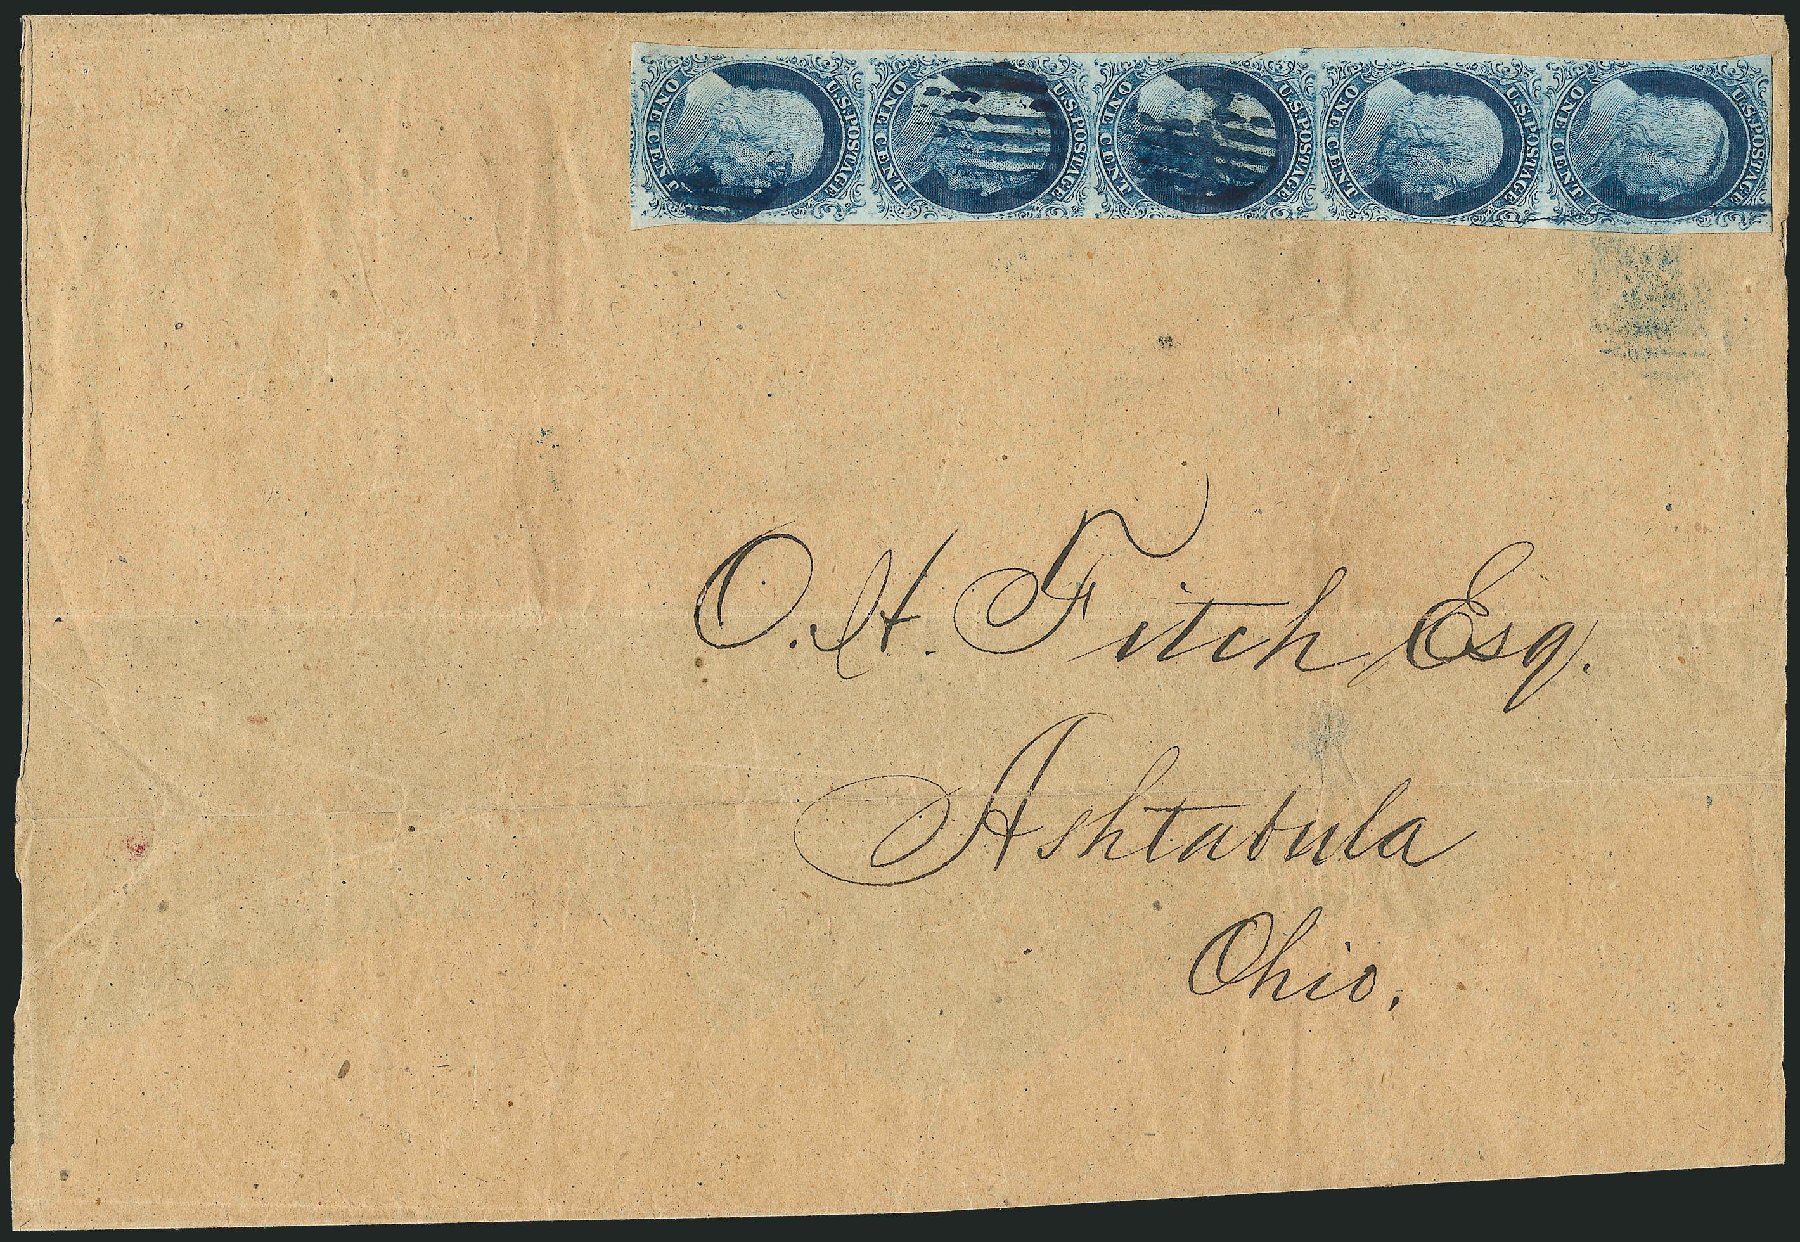 U.S. POSTAGE U.S. POSTAGE U.S. POSTAGE U.S. POSTAGE U.S. POSTAGE
ONE CENT ONE CENT ONE CENT ONE CENT ONE CENT
O. H. Fitch Esq.
Ashtabula
Ohio.